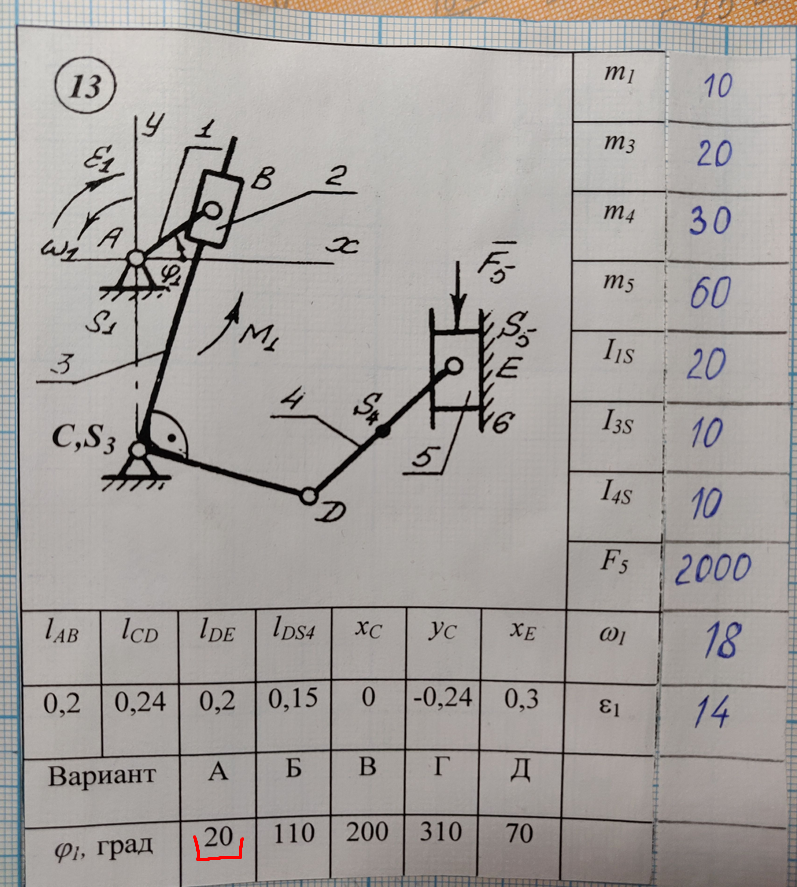 13
y
1
ε₁
B
2
ω₁
A
φ₁
x
S₁
F̅₅
M₁
3
S₅
E
4
S₄
C,S₃
5
6
D
m₁ 10
m₃ 20
m₄ 30
m₅ 60
I₁S 20
I₃S 10
I₄S 10
F₅ 2000
l_AB l_CD l_DE l_DS4 x_C y_C x_E ω₁ 18
0,2 0,24 0,2 0,15 0 -0,24 0,3 ε₁ 14
Вариант А Б В Г Д
φ₁, град 20 110 200 310 70